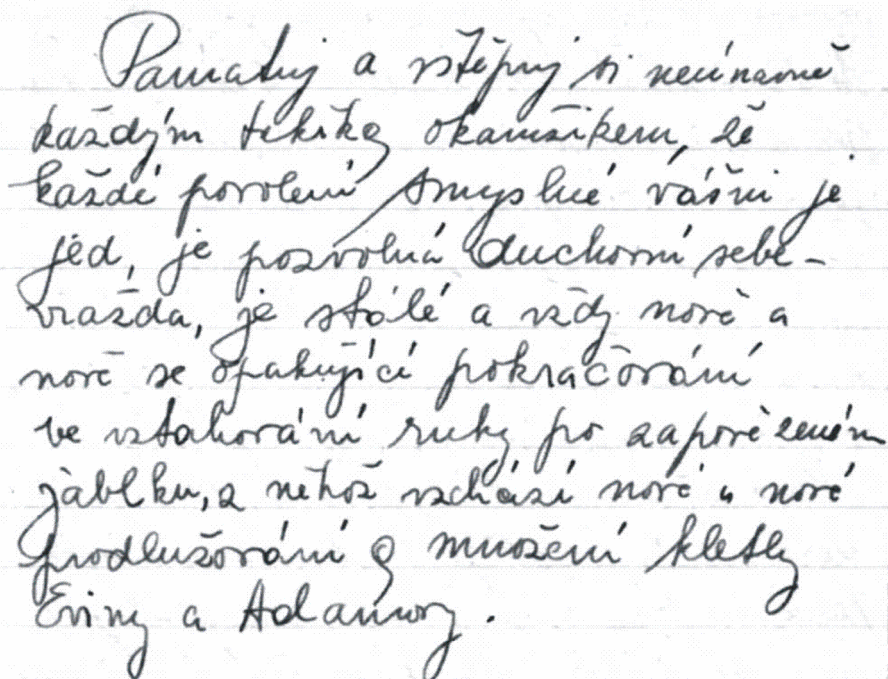 Pamatuj a vštěpuj si neúnavně
každým okamžikem, že
každé povolení smyslné vášni je
jed, je pozvolná duchovní sebe-
vražda, je stálé a vždy nově a
nově se opakující pokračování
ve vztahování ruky po zapovězeném
jablku, z něhož vzchází nové a nové
prodlužování a množení kletby
Eviny a Adamovy.